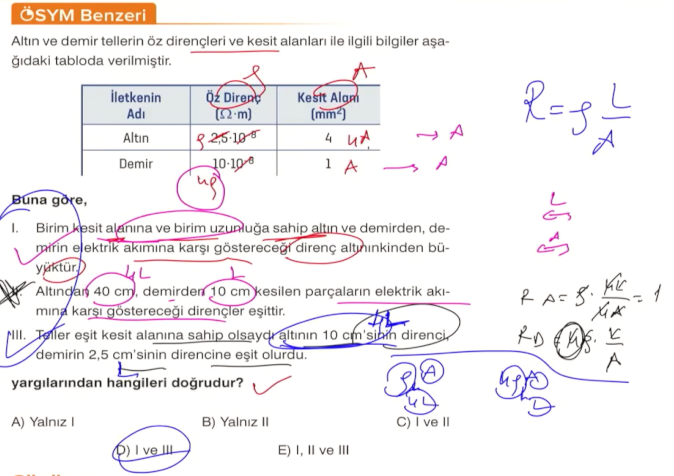 ÖSYM Benzeri
Altın ve demir tellerin öz dirençleri ve kesit alanları ile ilgili bilgiler aşa-
ğıdaki tabloda verilmiştir.
ρ A
İletkenin Adı Öz Direnç (Ω·m) Kesit Alanı (mm²)
Altın ρ 2,5·10⁻⁸ 4 4A → A
Demir 10·10⁻⁸ 1 A → A
4ρ
R = ρ L/A
Buna göre,
L
A
I. Birim kesit alanına ve birim uzunluğa sahip altın ve demirden, de-
mirin elektrik akımına karşı göstereceği direnç altınınkinden bü-
yüktür.
4L L
II. Altından 40 cm, demirden 10 cm kesilen parçaların elektrik akı-
mına karşı göstereceği dirençler eşittir.
R A = ρ · 4L/4A = 1
R D = 4ρ · L/A
4L
III. Teller eşit kesit alanına sahip olsaydı altının 10 cm'sinin direnci,
demirin 2,5 cm'sinin direncine eşit olurdu.
L
ρ A 4ρ A
4L L
yargılarından hangileri doğrudur?
A) Yalnız I B) Yalnız II C) I ve II
D) I ve III E) I, II ve III